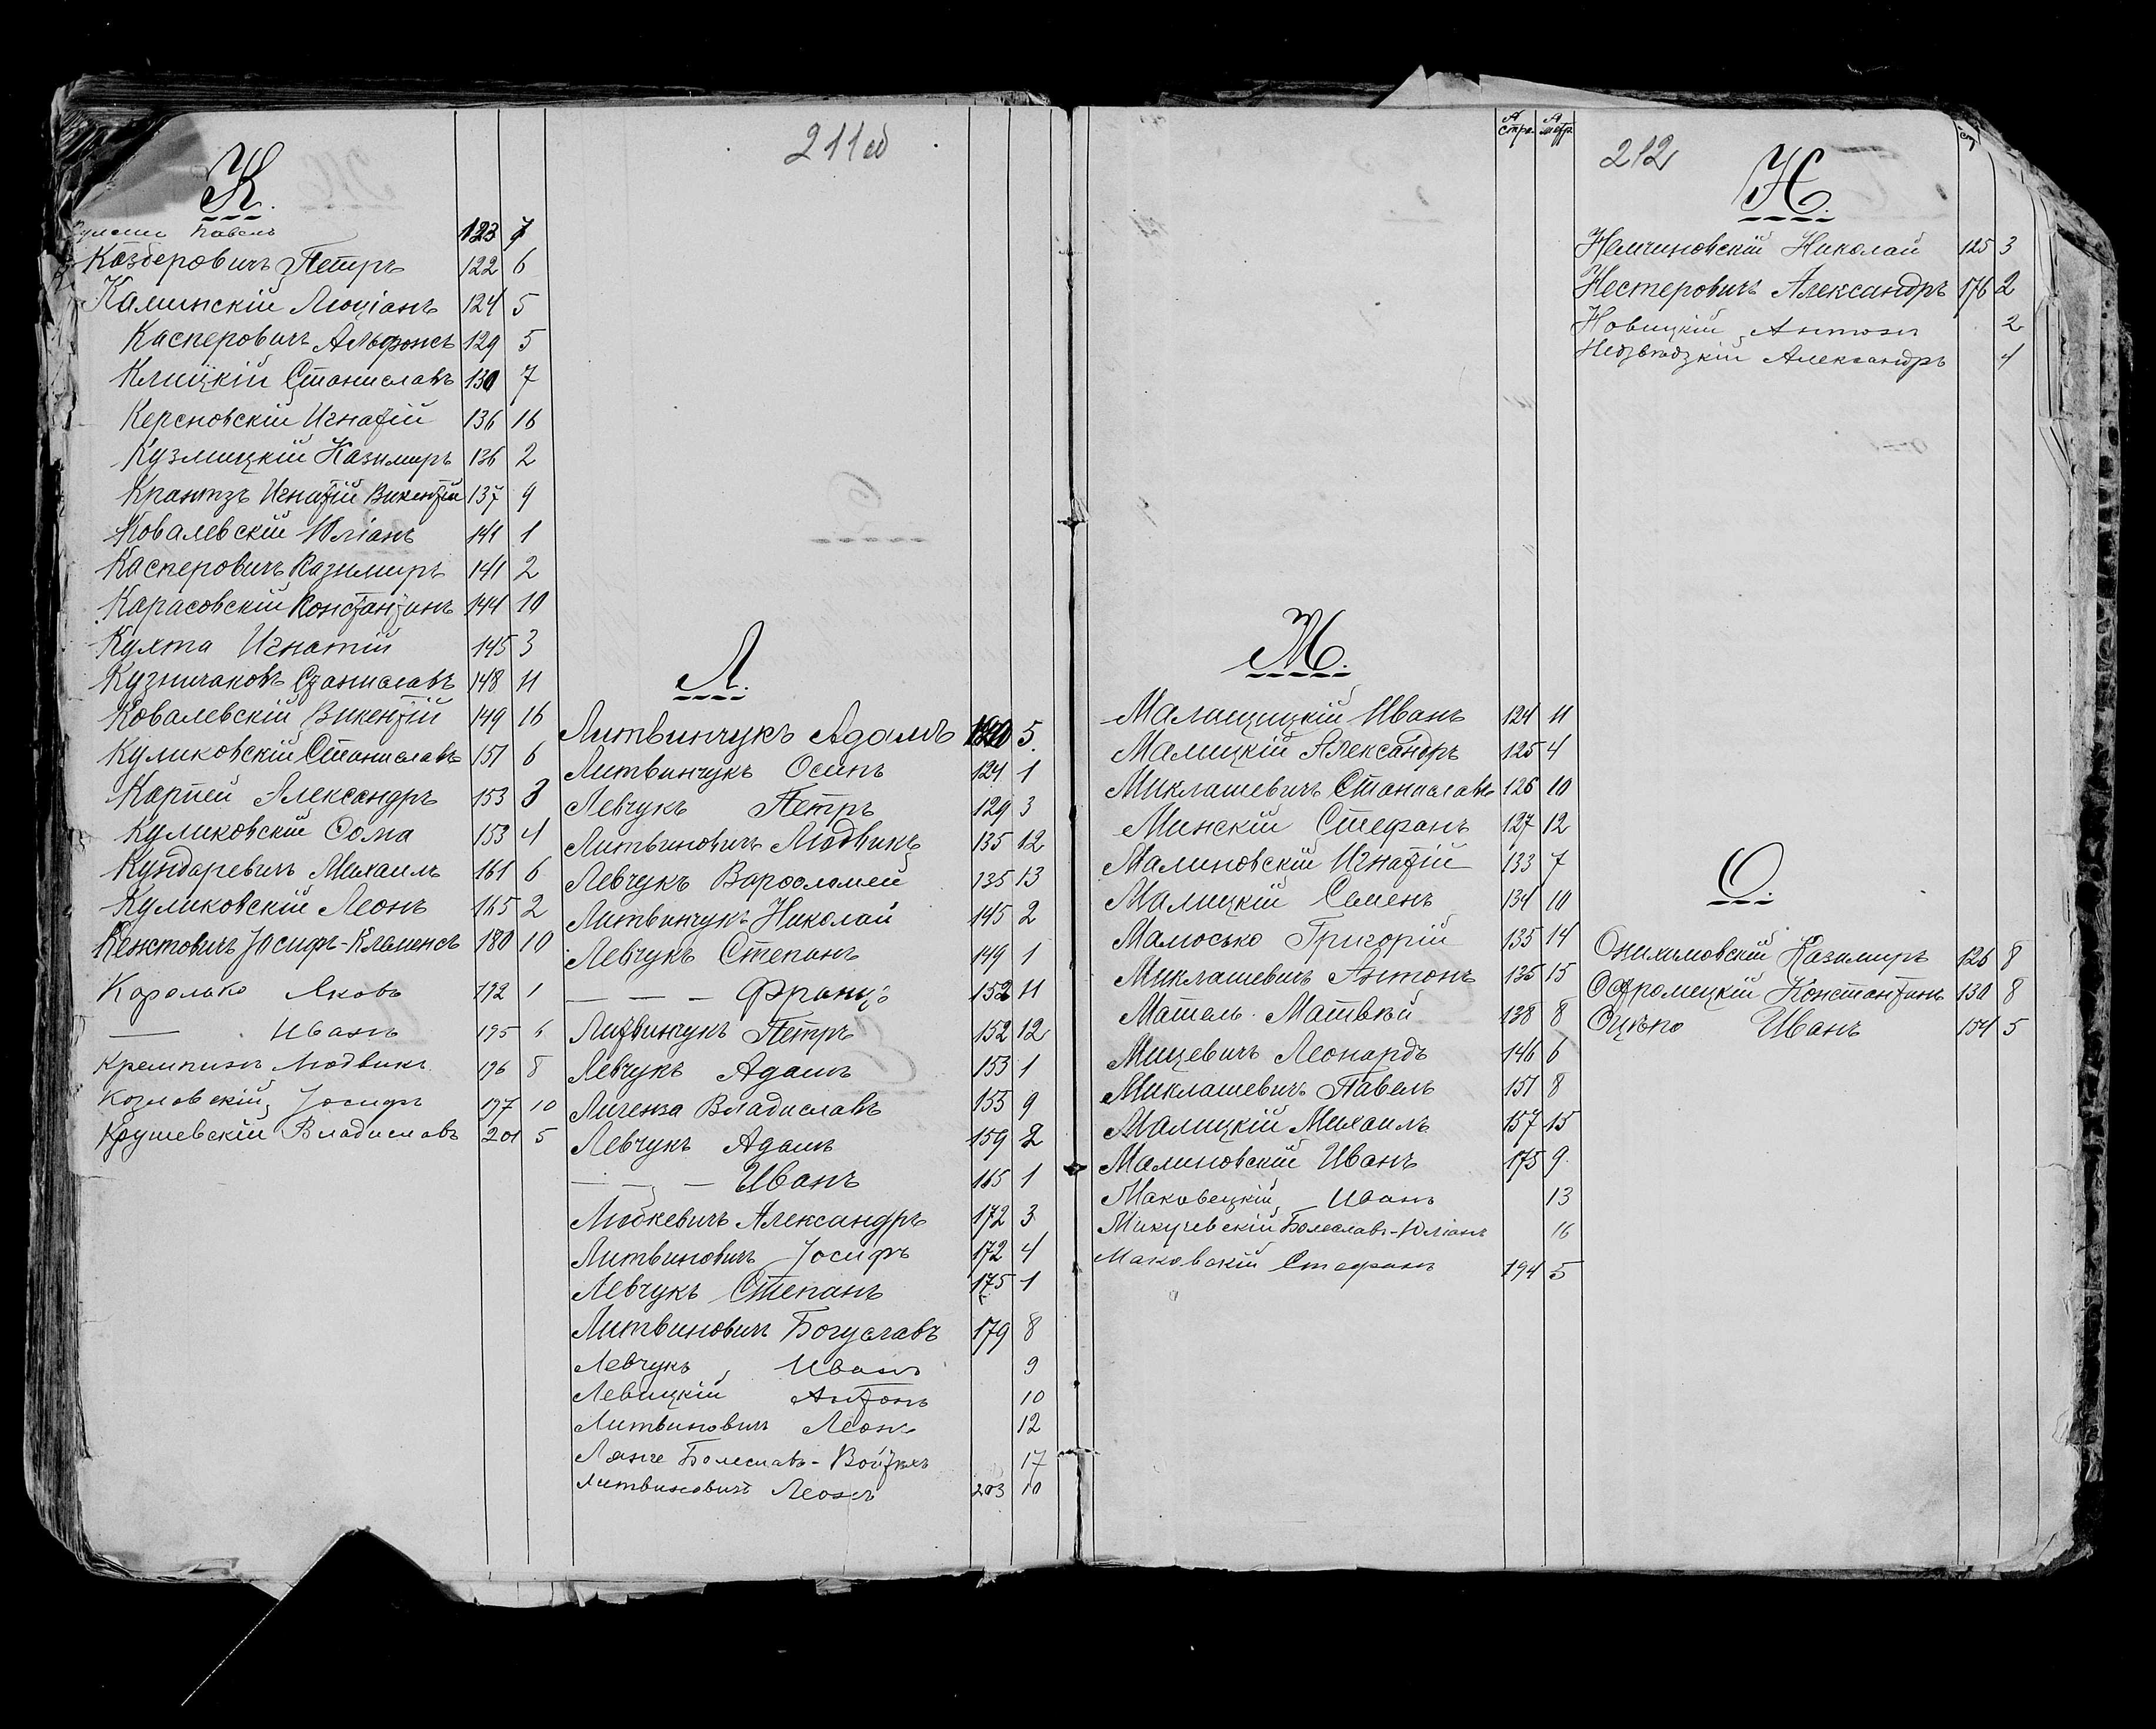 211об
К.
Павелъ 123 7
Казберовичъ Петръ 122 6
Каминскій Люціанъ 124 5
Касперовичъ Альфонсъ 129 5
Клицкій Станиславъ 130 7
Керсновскій Игнатій 136 16
Кузмицкій Казимиръ 136 2
Крантзъ Игнатій Викентій 137 9
Ковалевскій Юліанъ 141 1
Касперовичъ Казимиръ 141 2
Карасовскій Константинъ 144 10
Кухта Игнатій 145 3
Кузничаковъ Станиславъ 148 11
Ковалевскій Викентій 149 16
Куликовскій Станиславъ 151 6
Карпей Александръ 153 3
Куликовскій Ѳома 153 4
Кундаревичъ Михаилъ 161 6
Куликовскій Леонъ 165 2
Кенстовичъ Іосифъ-Клеменсъ 180 10
Королько Яковъ 192 1
— Иванъ 195 6
Кремпинъ Людвикъ 196 8
Козловскій Іосифъ 197 10
Крушевскій Владиславъ 201 5
Л.
Литвинчукъ Адамъ 5.
Литвинчукъ Осипъ 124 1
Левчукъ Петръ 129 3
Литвиновичъ Людвикъ 135 12
Левчукъ Варѳоломей 135 13
Литвинчукъ Николай 145 2
Левчукъ Степанъ 149 1
— — — Францъ 152 11
Литвинчукъ Петръ 152 12
Левчукъ Адамъ 153 1
Личенза Владиславъ 155 9
Левчукъ Адамъ 159 2
— — Иванъ 165 1
Любкевичъ Александръ 172 3
Литвиновичъ Іосифъ 172 4
Левчукъ Степанъ 175 1
Литвиновичъ Богуславъ 179 8
Левчукъ Иванъ 9
Левицкій Антонъ 10
Литвиновичъ Леонъ 12
Лянге Болеславъ-Войтѣхъ 17
Литвиновичъ Леонъ 203 10
№ стра. № метр.
М.
Малащицкій Иванъ 124 11
Малицкій Александръ 125 4
Миклашевичъ Станиславъ 126 10
Минскій Стефанъ 127 12
Малиновскій Игнатій 133 7
Малицкій Семенъ 134 10
Малюсько Григорій 135 14
Миклашевичъ Антонъ 135 15
Матель Матвѣй 138 8
Мицевичъ Леонардъ 146 6
Миклашевичъ Павелъ 151 8
Малицкій Михаилъ 157 15
Малиновскій Иванъ 175 9
Маковецкій Иванъ 13
Микучевскій Болеславъ-Юліанъ 16
Маковскій Стефанъ 194 5
212
Н.
Немчиновскій Николай 125 3
Нестеровичъ Александръ 176 2
Новицкій Антонъ 2
Недзвѣдзкій Александръ 4
О.
Онихимовскій Казимиръ 126 8
Остромецкій Константинъ 130 8
Оцѣпо Иванъ 154 5